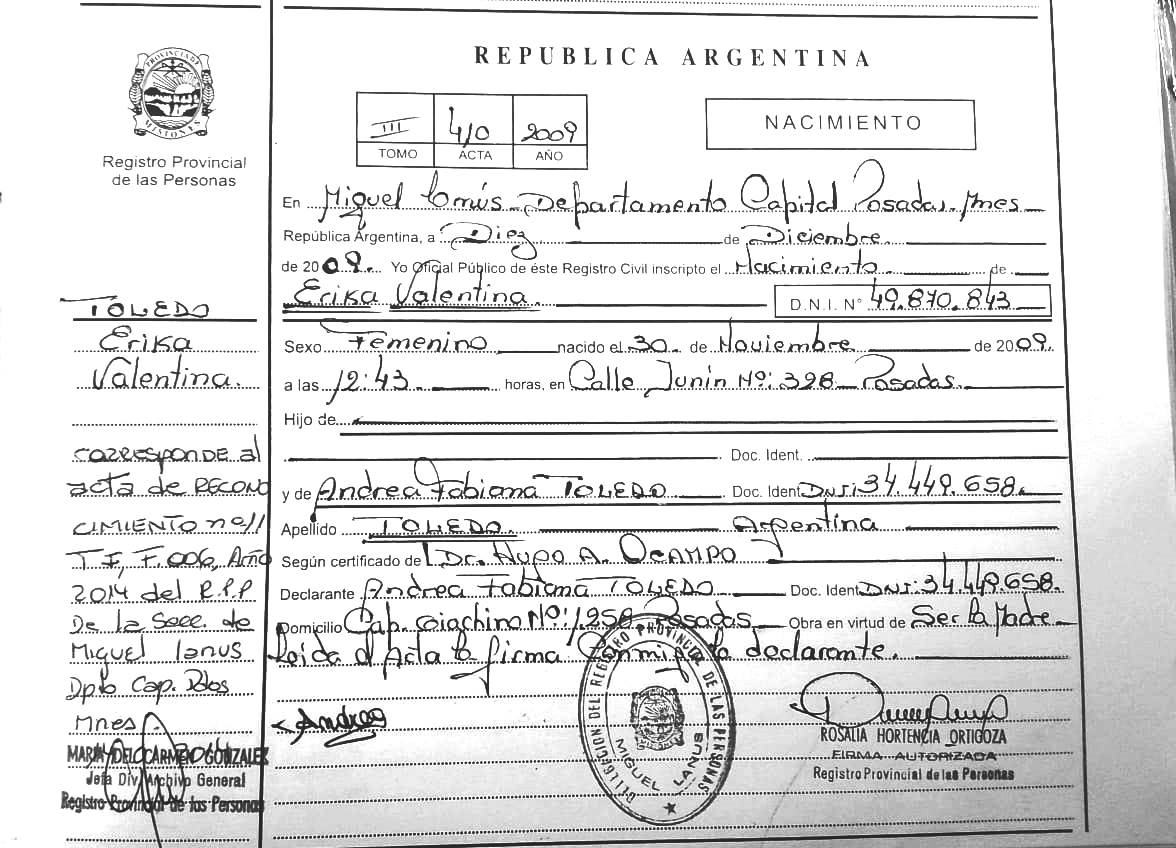 PROVINCIA DE
MISIONES
Registro Provincial
de las Personas
TOLEDO
Erika
Valentina.
CORRESPONDE al
acta de RECONO
CIMIENTO nº11
T I, F. 006, Año
2014 del R.P.P
De la Secc. de
Miguel Lanus
Dpto Cap. Pdos
Mnes.
MARIA DEL CARMEN GONZALEZ
Jefa Div. Archivo General
Registro Provincial de las Personas
REPUBLICA ARGENTINA
III 410 2009
TOMO ACTA AÑO
NACIMIENTO
En Miguel Lanús Departamento Capital Posadas. Mnes
República Argentina, a Diez de Diciembre
de 2009. Yo Oficial Público de éste Registro Civil inscripto el Nacimiento de
Erika Valentina. D.N.I. N° 49.870.843
Sexo Femenino nacido el 30 de Noviembre de 2009.
a las 12:43 horas, en Calle Junín Nº: 328 Posadas.
Hijo de
Doc. Ident.
y de Andrea Fabiana TOLEDO Doc. Ident DNI: 34.449.658.
Apellido TOLEDO. Argentina
Según certificado de Dr. Hugo A. OCAMPO
Declarante Andrea Fabiana TOLEDO Doc. Ident DNI: 34.449.658.
Domicilio Cap. Giachino Nº: 1.258 Posadas Obra en virtud de Ser la Madre
Leida el Acta la firma Conmigo la declarante.
Andrea
DELEGACION DEL REGISTRO PROVINCIAL DE LAS PERSONAS
MIGUEL LANUS
ROSALIA HORTENCIA ORTIGOZA
FIRMA AUTORIZADA
Registro Provincial de las Personas